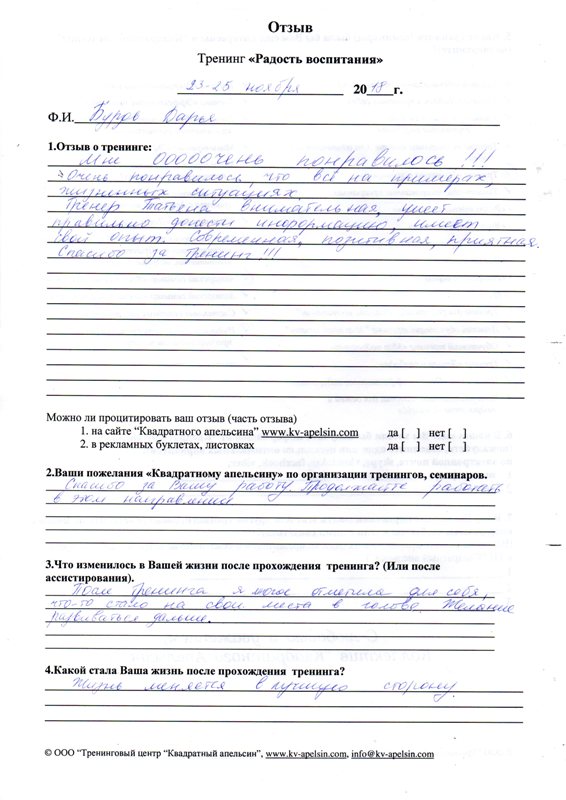 Отзыв
Тренинг «Радость воспитания»
23-25 ноября 2018 г.
Ф.И. Дарья
1.Отзыв о тренинге:
Мне ооооочень понравилось!!!
Очень понравилось, что всё на примерах,
жизненных ситуациях.
Тренер Татьяна внимательная, умеет
правильно донести информацию, имеет
свой опыт. Современная, позитивная, приятная.
Спасибо за тренинг!!!
Можно ли процитировать ваш отзыв (часть отзыва)
1. на сайте “Квадратного апельсина” www.kv-apelsin.com да [ ] нет [ ]
2. в рекламных буклетах, листовках да [ ] нет [ ]
2.Ваши пожелания «Квадратному апельсину» по организации тренингов, семинаров.
Спасибо за Вашу работу. Продолжайте работать
в этом направлении
3.Что изменилось в Вашей жизни после прохождения тренинга? (Или после
ассистирования).
После тренинга я отметила для себя,
что-то стало на свои места в голове. Желание
развиваться дальше.
4.Какой стала Ваша жизнь после прохождения тренинга?
Жизнь меняется в лучшую сторону.
© ООО “Тренинговый центр “Квадратный апельсин”, www.kv-apelsin.com, info@kv-apelsin.com